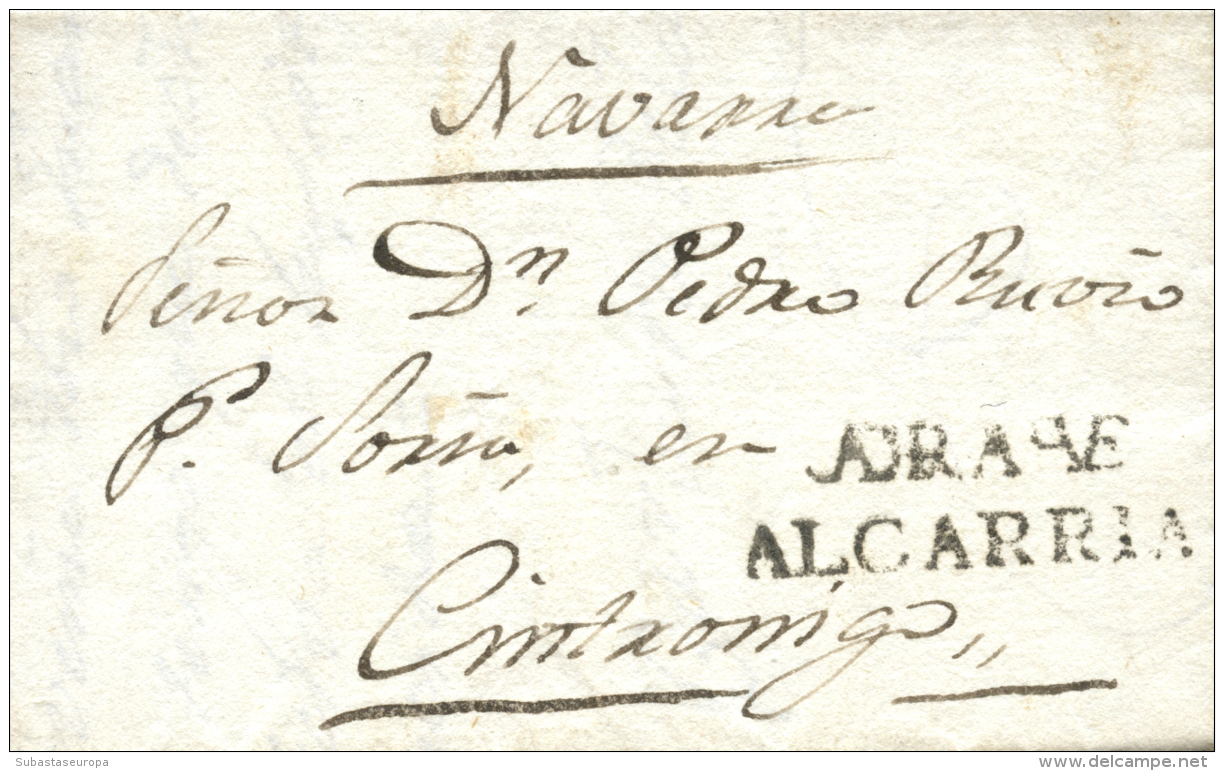 Navarra
Señor Dn. Pedro Ruvio
P. Soria, en
ALCARRIA
Cintronigo,,
Subastaseuropa
delcampe.net